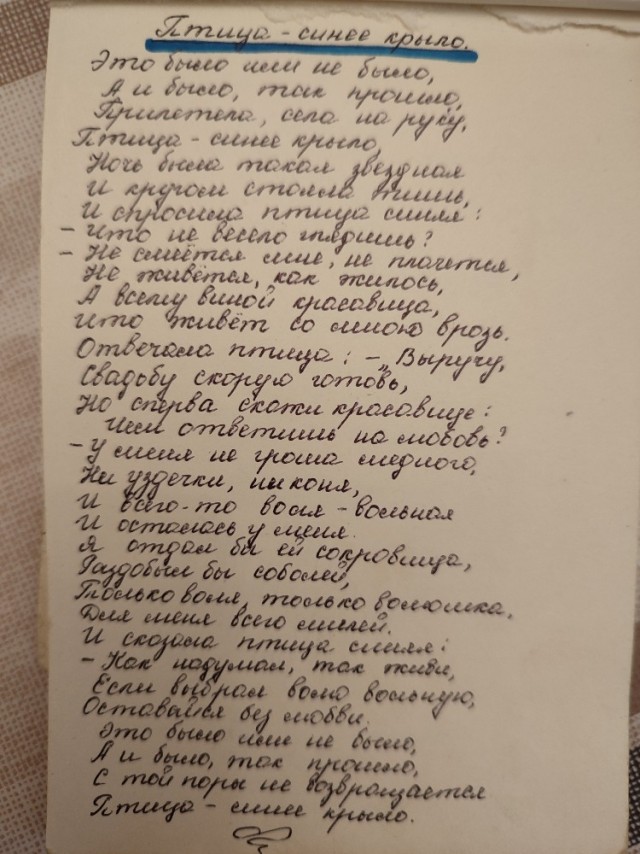 Птица - синее крыло.
Это было или не было,
А и было, так прошло,
Прилетела, села на руку,
Птица - синее крыло,
Ночь была такая звездная
И кругом стояла тишь,
И спросила птица синяя:
- Что не весело глядишь?
- Не смеётся мне, не плачется,
Не живётся, как жилось,
А всему виной красавица,
Что живёт со мною врозь.
Отвечала птица: - „Выручу,
Свадьбу скорую готовь,
Но сперва скажи красавице:
Чем ответишь на любовь?
- У меня не гроша медного,
Ни уздечки, ни коня,
И всего-то воля - вольная
И осталась у меня.
Я отдал бы ей сокровища,
Раздобыл бы соболей,
Только воля, только волюшка,
Для меня всего милей.
И сказала птица синяя:
- Как надумал, так живи,
Если выбрал волю вольную,
Оставайся без любви.
Это было или не было,
А и было, так прошло,
С той поры не возвращается
Птица - синее крыло.